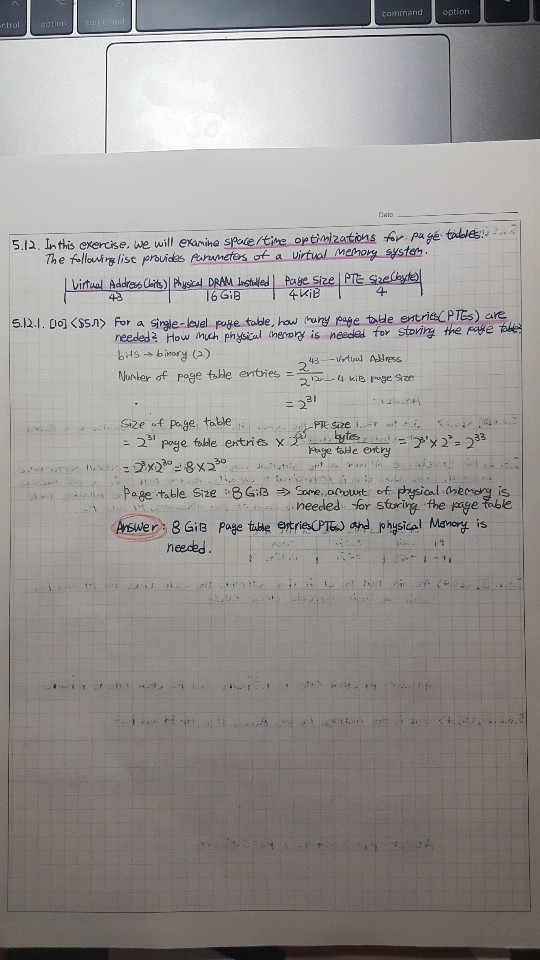 command
option
option
command
Date.
5.12. In this exercise, we will examine space/time optimizations for page tables.
The following list provides parameters of a virtual memory system.
Virtual Address (bits) | Physical DRAM Installed | Page Size | PTE Size (byte)
43 | 16 GiB | 4 KiB | 4
5.12.1. [10] <§5.7> For a single-level page table, how many page table entries (PTEs) are
needed? How much physical memory is needed for storing the page table?
bits → binary (2)
Number of page table entries = 2^43 — Virtual Address
2^12 — 4 KiB page size
= 2^31
Size of page table
= 2^31 page table entries × 2^2 PTE size bytes / page table entry = 2^31 × 2^2 = 2^33
= 2^3 × 2^30 = 8 × 2^30
Page table size : 8 GiB ⇒ Same amount of physical memory is
needed for storing the page table
Answer : 8 GiB page table entries (PTEs) and physical Memory is
needed.